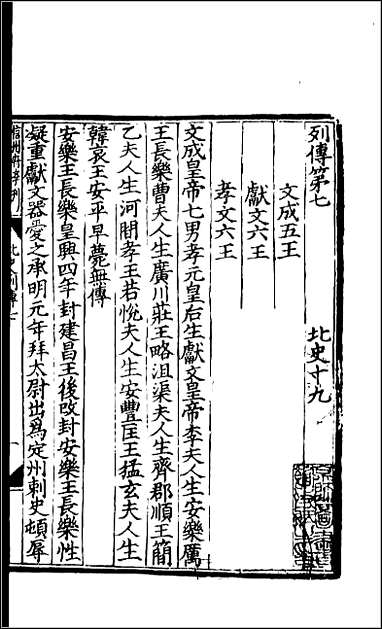 列傳第七　北史十九
文成五王
獻文六王
孝文六王
文成皇帝七男孝元皇后生獻文皇帝李夫人生安樂厲
王長樂曹夫人生廣川莊王略沮渠夫人生齊郡順王簡
乙夫人生河間孝王若悅夫人生安豐匡王猛玄夫人生
韓哀王安平早薨無傳
安樂王長樂皇興四年封建昌王後改封安樂王長樂性
凝重獻文器愛之承明元年拜太尉出爲定州刺史頓辱